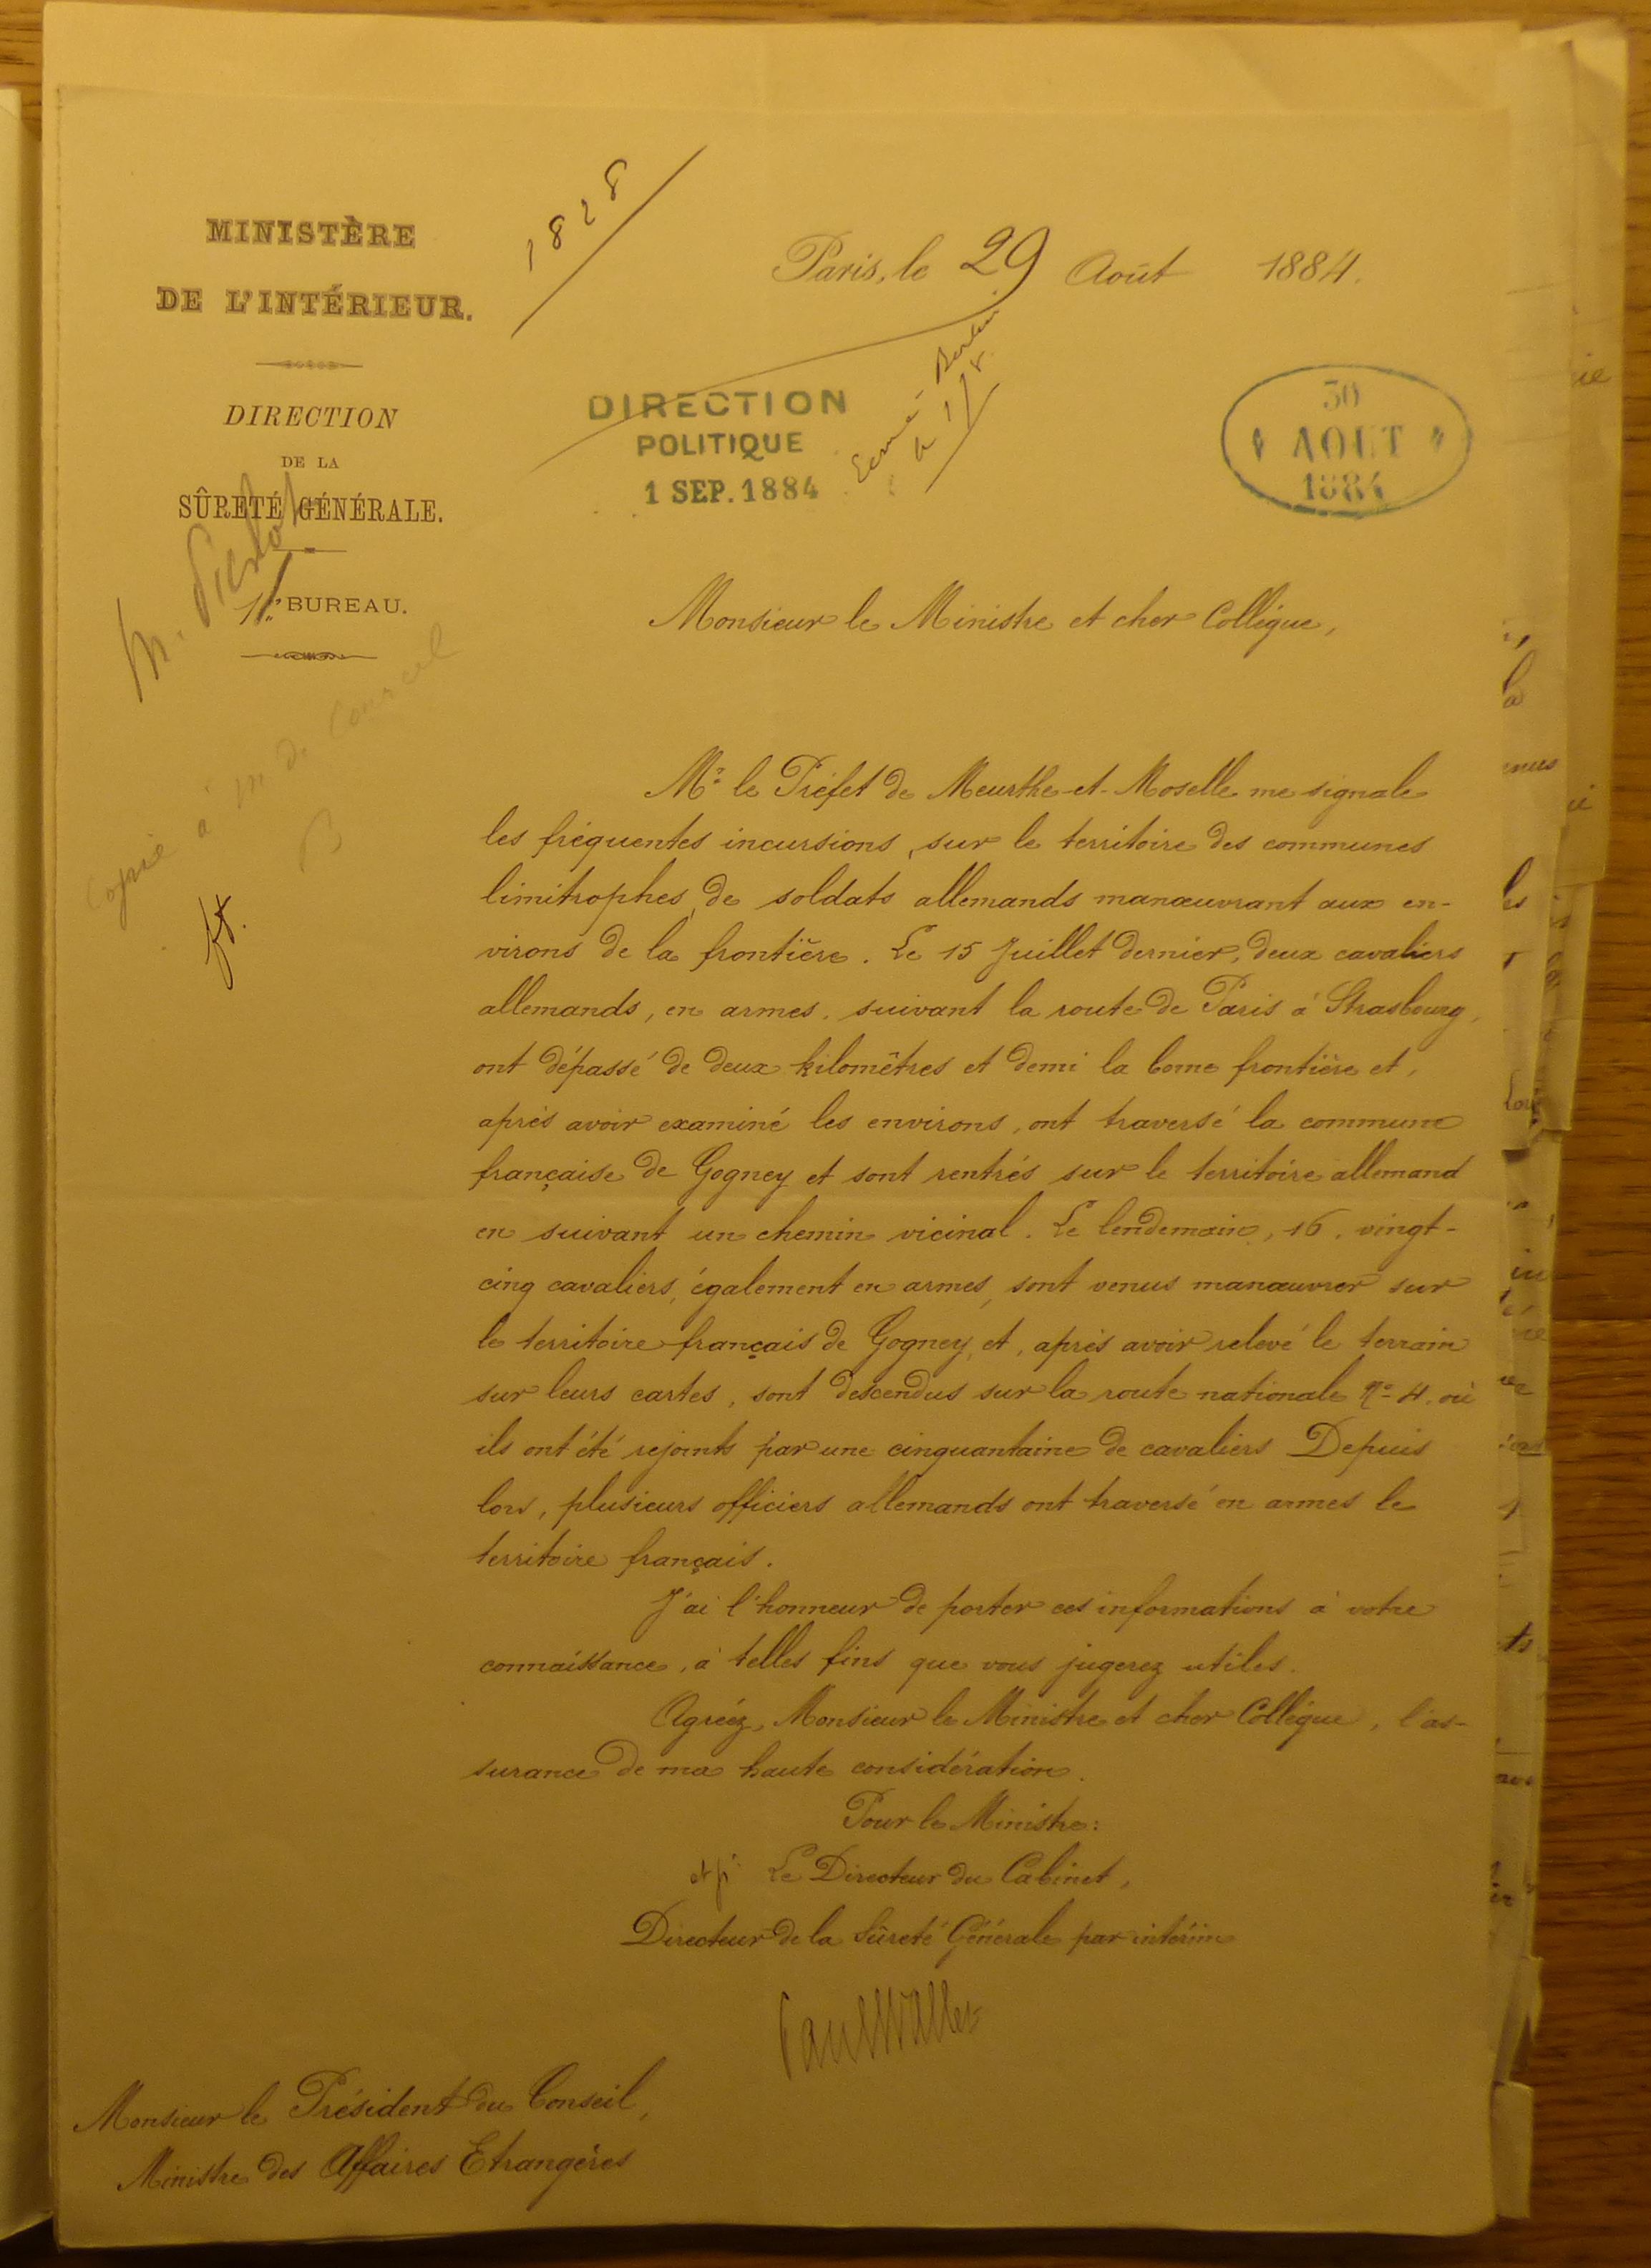 1828
MINISTÈRE
DE L'INTÉRIEUR.
DIRECTION
DE LA
SÛRETÉ GÉNÉRALE.
1er BUREAU.
Paris, le 29 Août 1884.
DIRECTION
POLITIQUE
1 SEP. 1884
Berlin
30
AOUT
1884
M.
Copie à M de Courcel
B
Monsieur le Ministre et cher Collègue,
Mr le Préfet de Meurthe-et-Moselle me signale
les fréquentes incursions, sur le territoire des communes
limitrophes, de soldats allemands manœuvrant aux en-
virons de la frontière. Le 15 Juillet dernier, deux cavaliers
allemands, en armes, suivant la route de Paris à Strasbourg,
ont dépassé de deux kilomètres et demi la borne frontière et,
après avoir examiné les environs, ont traversé la commune
française de Gogney et sont rentrés sur le territoire allemand
en suivant un chemin vicinal. Le lendemain, 16, vingt-
cinq cavaliers, également en armes, sont venus manœuvrer sur
le territoire français de Gogney, et, après avoir relevé le terrain
sur leurs cartes, sont descendus sur la route nationale No 4, où
ils ont été rejoints par une cinquantaine de cavaliers Depuis
lors, plusieurs officiers allemands ont traversé en armes le
territoire français.
J'ai l'honneur de porter ces informations à votre
connaissance, à telles fins que vous jugerez utiles.
Agréez, Monsieur le Ministre et cher Collègue, l'as-
surance de ma haute considération.
Pour le Ministre:
Le Directeur du Cabinet,
Directeur de la Sûreté Générale par intérim
Monsieur le Président du Conseil,
Ministre des Affaires Etrangères